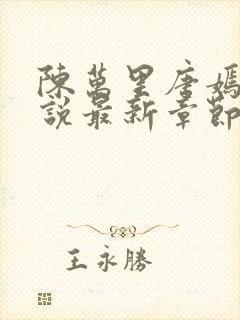 陳萬里唐嫣
說最新章節
王永勝